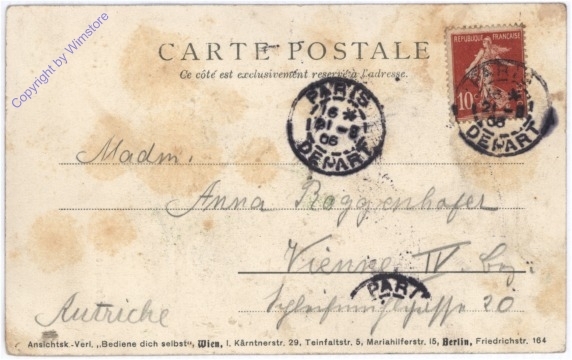 Copyright by Wimstore
CARTE POSTALE
Ce côté est exclusivement reservé à l'adresse.
REPUBLIQUE FRANÇAISE
10
PARIS
DEPART
PARIS
16 *
21-8
06
DEPART
Madm.
Anna Roggenhofer
Vienne IV. bez.
PARI
Autriche
20
Ansichtsk.-Verl. „Bediene dich selbst", Wien, I. Kärntnerstr. 29, Teinfaltstr. 5, Mariahilferstr. 15, Berlin, Friedrichstr. 164